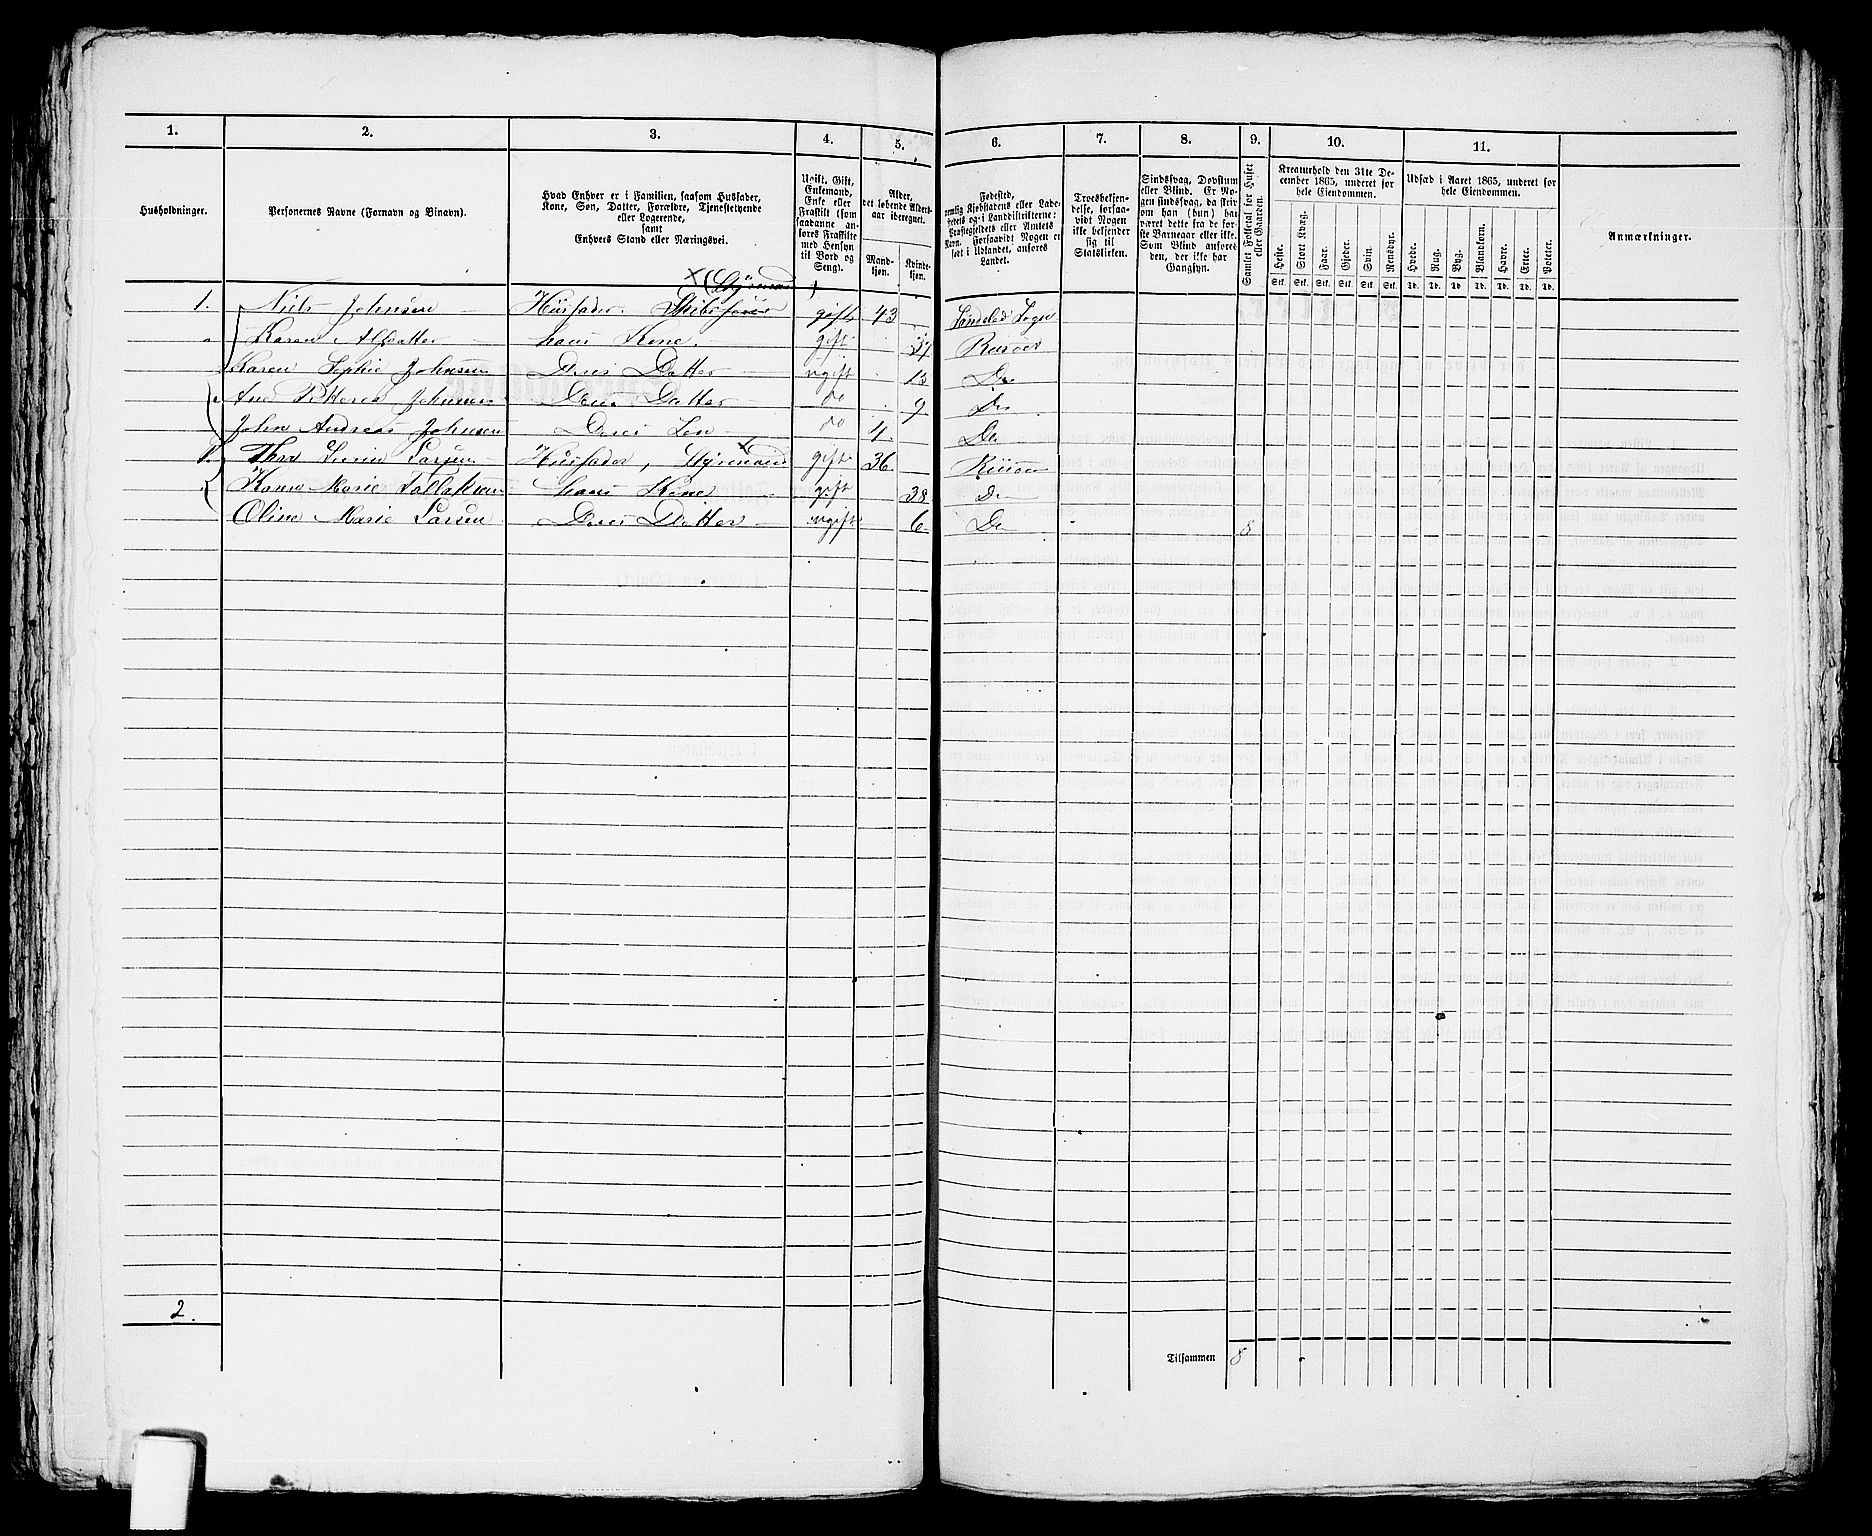 1. 2. 3. 4. 5. 6. 7. 8. 9. 10. 11.
Husholdninger.
Personernes Navne (Fornavn og Binavn).
Hvad Enhver er i Familien, saasom Husfader,
Kone, Søn, Datter, Forældre, Tjenestetyende
eller Logerende,
samt
Enhvers Stand eller Næringsvei.
Ugift, Gift,
Enkemand,
Enke eller
Fraskilt (som
saadanne anføres
Fraskilte
med Hensyn
til Bord og
Seng).
Alder,
det løbende Aldersaar
iberegnet.
Mandkjøn.
Kvindekjøn.
Fødested,
nemlig Kjøbstadens eller Ladestedets
og i Landdistrikterne:
Præstegjeldets eller Amtets
Navn. Forsaavidt Nogen er
født i Udlandet, anføres
Landet.
Troesbekjendelse,
forsaavidt
Nogen
ikke bekjender
sig til
Statskirken.
Sindssvag, Døvstum
eller Blind. Er Nogen
sindssvag, da skriv
om han (hun) har
været dette fra de første
Barneaar eller ikke.
Som Blind anføres
den, der ikke har
Gangsyn.
Samlet Folketal for Huset
eller Gaarden.
Kreaturhold den 31te December
1865, underet for
hele Eiendommen.
Heste. Stort Kvæg. Faar. Gjeder. Svin. Rensdyr.
Stk. Stk. Stk. Stk. Stk. Stk.
Udsæd i Aaret 1865, underet for
hele Eiendommen.
Hvede. Rug. Byg. Blandkorn. Havre. Erter. Poteter.
Td. Td. Td. Td. Td. Td. Td.
Anmærkninger.
× (Styrmand)
1. Niels Johnsen Husfader. Skibsfører gift 43 Søndeled Sogn
Karen Alfsdatter hans Kone. gift 37 Risøer
Karen Sophie Johnsen Deres Datter ugift 13 Do
Ane Johnsen Deres Datter do 9 Do
John Andreas Johnsen Deres Søn do 4 Do
1. Larsen Husfader, Styrmand × gift 36 Risøer
Karen Marie Tallaksen hans Kone gift 38 Do
Oline Marie Larsen Deres Datter ugift 6 Do 8
2.
Tilsammen 8